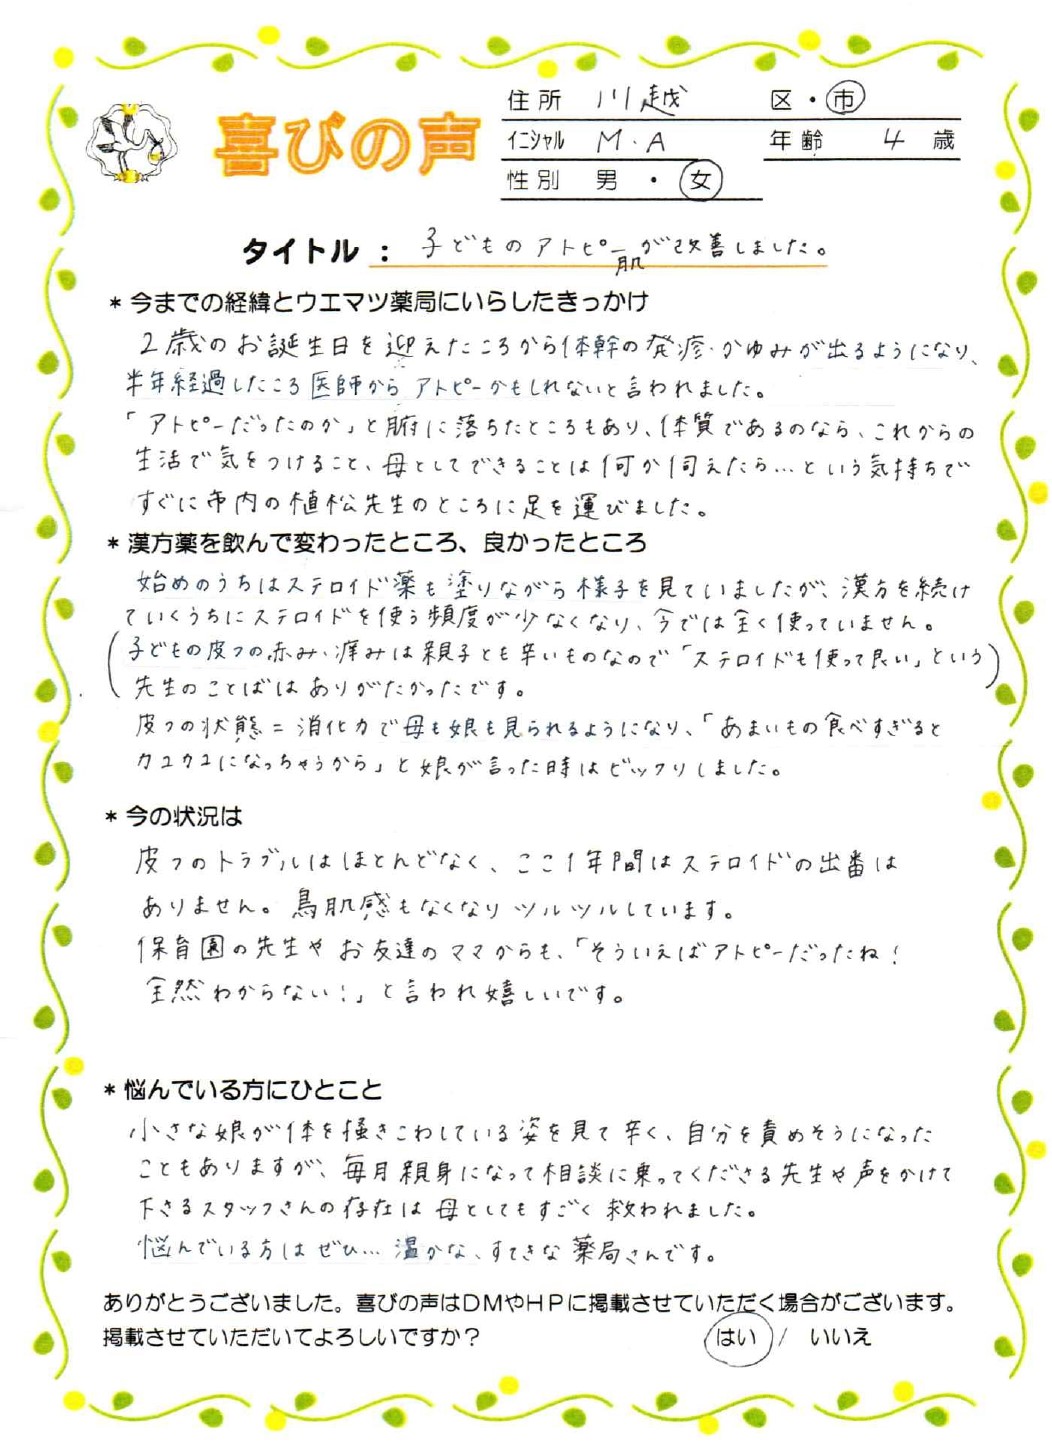 喜びの声
住所 川越 区・市
イニシャル M.A 年齢 4 歳
性別 男 ・ 女
タイトル : 子どものアトピー肌が改善しました。
* 今までの経緯とウエマツ薬局にいらしたきっかけ
2歳のお誕生日を迎えたころから体幹の発疹・かゆみが出るようになり、
半年経過したころ医師から アトピーかもしれないと言われました。
「アトピーだったのか」と腑に落ちたところもあり、体質であるのなら、これからの
生活で気をつけること、母としてできることは何か伺えたら…という気持ちで
すぐに市内の植松先生のところに足を運びました。
* 漢方薬を飲んで変わったところ、良かったところ
始めのうちはステロイド薬も塗りながら様子を見ていましたが、漢方を続け
ていくうちにステロイドを使う頻度が少なくなり、今では全く使っていません。
(子どもの皮フの赤み・痒みは親子とも辛いものなので「ステロイドも使って良い」という
先生のことばはありがたかったです。)
皮フの状態=消化力で母も娘も見られるようになり、「あまいもの食べすぎると
カユカユになっちゃうから」と娘が言った時はビックリしました。
* 今の状況は
皮フのトラブルはほとんどなく、ここ1年間はステロイドの出番は
ありません。鳥肌感もなくなりツルツルしています。
保育園の先生やお友達のママからも、「そういえばアトピーだったね!
全然わからない!」と言われ嬉しいです。
* 悩んでいる方にひとこと
小さな娘が体を掻きこわしている姿を見て辛く、自分を責めそうになった
こともありますが、毎月親身になって相談に乗ってくださる先生や声をかけて
下さるスタッフさんの存在は母としてもすごく救われました。
悩んでいる方はぜひ…温かな、すてきな薬局さんです。
ありがとうございました。喜びの声はDMやHPに掲載させていただく場合がございます。
掲載させていただいてよろしいですか? はい / いいえ